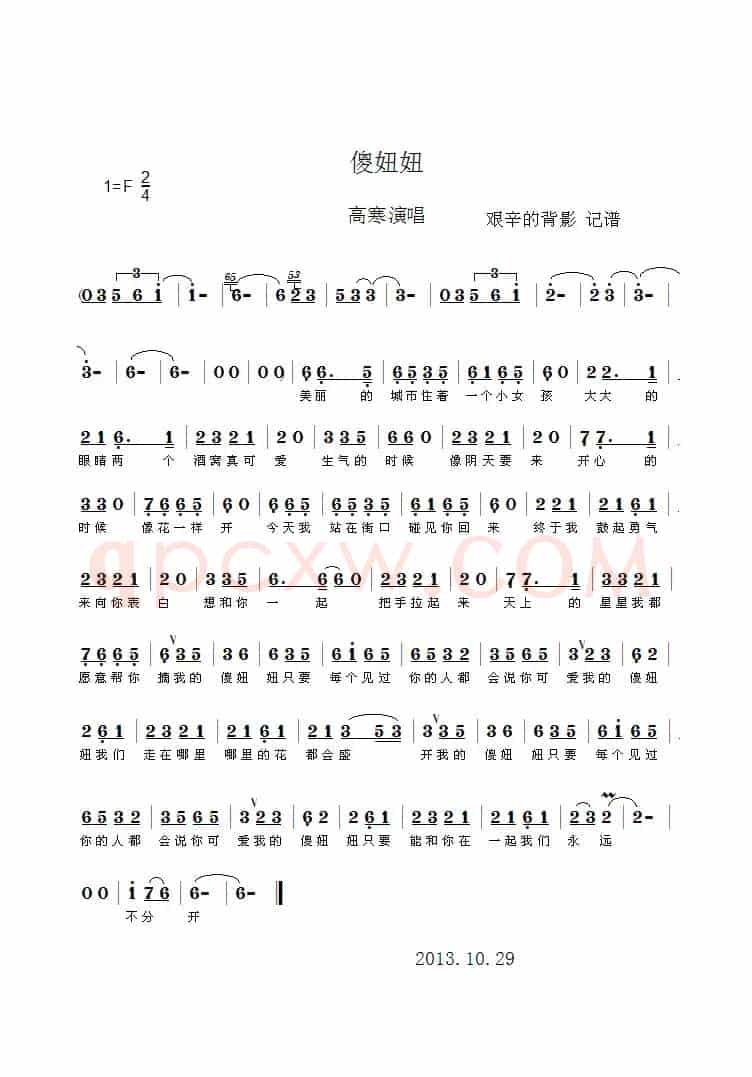 傻妞妞
1=F 2/4
高寒演唱 艰辛的背影 记谱
(0 3 5 6 i | i - | 65 6 - | 6 53 2 3 | 5 3 3 | 3 - | 0 3 5 6 i | 2 - | 2 3 | 3 -
3 - | 6 - | 6 - | 0 0 | 0 0 | 6 6. 5 | 6 5 3 5 | 6 1 6 5 | 6 0 | 2 2. 1 |
美丽 的 城市住着 一个小女 孩 大大 的
2 1 6. 1 | 2 3 2 1 | 2 0 | 3 3 5 | 6 6 5 | 2 3 2 1 | 2 0 | 7 7. 1 |
眼睛两 个 酒窝真可 爱 生气的 时候 像阴天要 来 开心的
3 3 0 | 7 6 6 5 | 6 0 | 6 6 5 | 6 1 6 5 | 6 1 6 5 | 6 0 | 2 2 1 | 2 1 6 1 |
时候 像花一样 开 今天我 站在街口 碰见你回 来 终于我 鼓起勇气
2 3 2 1 | 2 0 | 3 3 5 | 6. 6 | 6 6 0 | 2 3 2 1 | 2 0 | 7 7. 1 | 3 3 2 1 |
来向你表 白 想和你 一 起 把手拉起 来 天上 的 星星我都
7 6 6 5 | 6 V 3 5 | 3 6 | 6 3 5 | 6 i 6 5 | 6 5 3 2 | 3 5 6 5 | 3 V 2 3 | 6 2 |
愿意帮你 摘我的 傻妞 妞只要 每个见过 你的人都 会说你可 爱我的 傻妞
2 6 1 | 2 3 2 1 | 2 6 1 | 2 1 3 5 3 | 3 V 3 5 | 3 6 | 6 3 5 | 6 i 6 5 |
妞我们 走在哪里 哪里的花 都会盛 开我的 傻妞 妞只要 每个见过
6 5 3 2 | 3 5 6 5 | 3 V 2 3 | 6 2 | 2 6 1 | 2 3 2 1 | 2 1 6 1 | 2 3 2 | 2 - |
你的人都 会说你可 爱我的 傻妞 妞只要 能和你在 一起我们 永 远
0 0 | i 7 6 | 6 - | 6 - ‖
不分 开
2013.10.29
qpcxw.COM